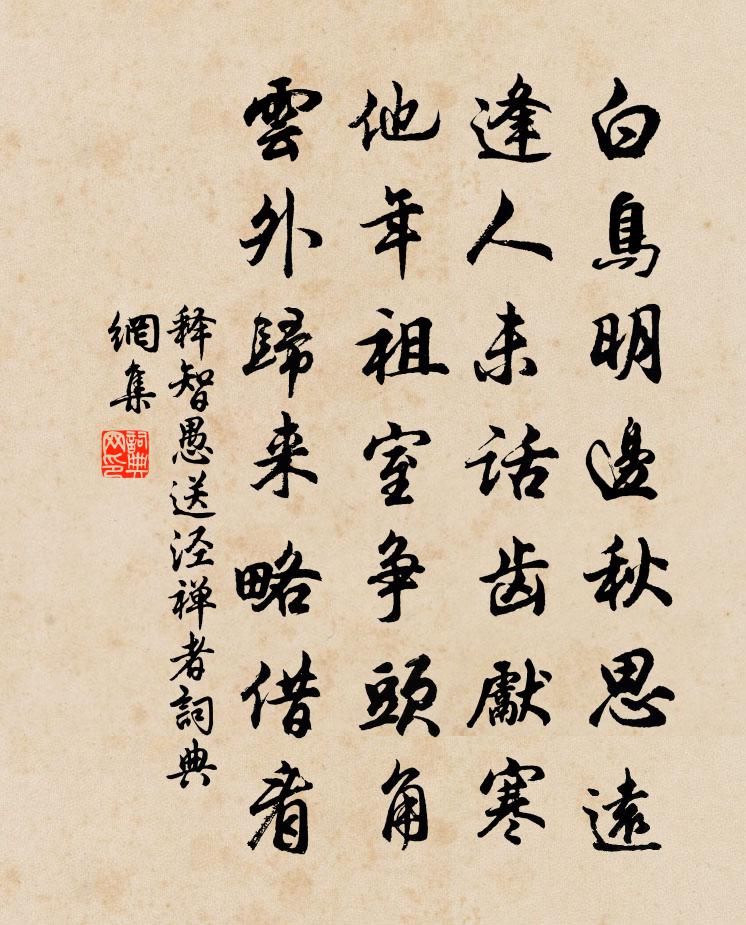 白鳥明邊秋思遠
逢人未話齿獻寒
他年祖室争頭角
雲外歸来略借看
释智愚送泾禅者詞典
網集
詞典
网印